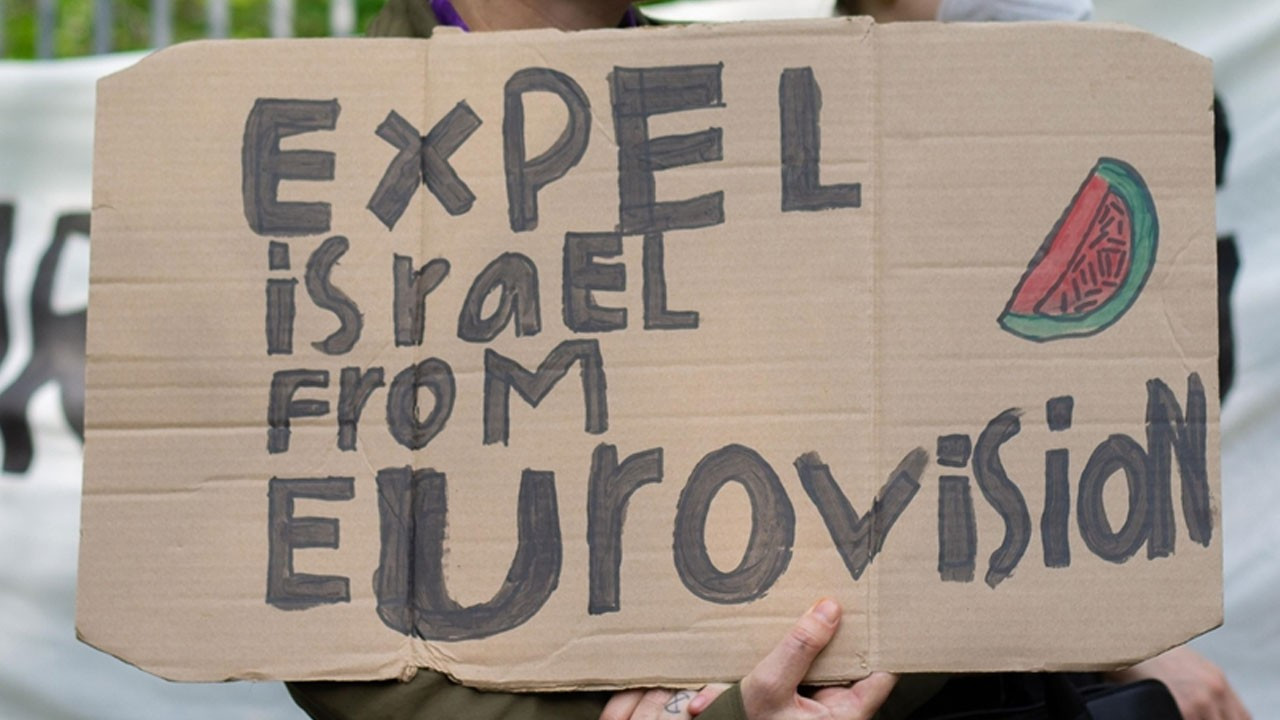 EXPEL
israEL
From
EUroviSioN